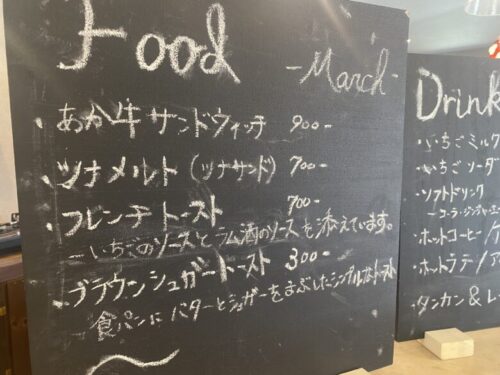 Food
- March -
・あか牛サンドウィッチ 900-
・ツナメルト (ツナサンド) 700-
・フレンチトースト 700-
－いちごのソースとラム酒のソースを添えています。
・ブラウンシュガートースト 300-
食パンにバターとシュガーをまぶしたシンプルなトースト
Drink
・いちごミルク
・いちごソーダ
・ソフトドリンク
－コーラ・ジンジャーエー
・ホットコーヒー/
・ホットラテ/ア
・タンカン&レ